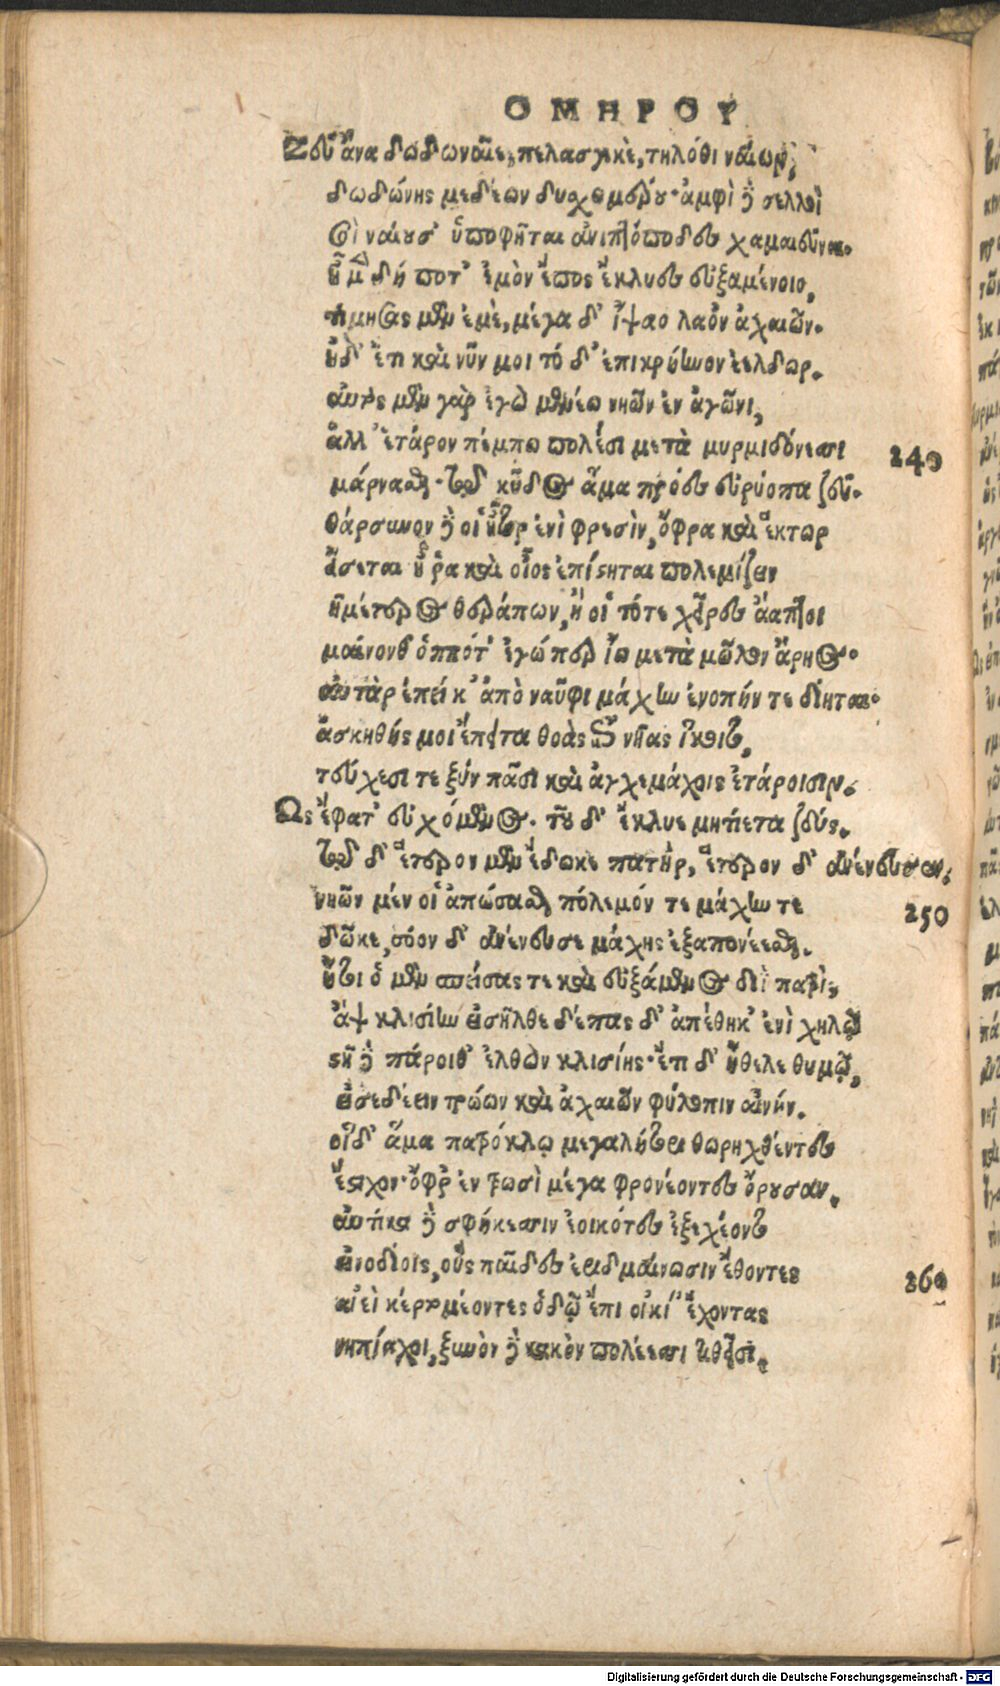 ΟΜΗΡΟΥ
Ζεῦ ἄνα δωδωναῖε, πελασγικὲ, τηλόθι ναίων,
δωδώνης μεδέων δυσχειμέρου· ἀμφὶ δὲ σελλοὶ
σοὶ ναίουσ' ὑποφῆται ἀνιπτόποδες χαμαιεῦναι.
ἦ μὲν δή ποτ' ἐμὸν ἔπος ἔκλυες εὐξαμένοιο,
τιμήσας μὲν ἐμὲ, μέγα δ' ἴψαο λαὸν ἀχαιῶν.
ἠδ' ἔτι καὶ νῦν μοι τό δ' ἐπικρήηνον ἐέλδωρ.
αὐτὸς μὲν γὰρ ἐγὼ μενέω νηῶν ἐν ἀγῶνι,
ἀλλ' ἕταρον πέμπω πολέσι μετὰ μυρμιδόνεσσι 240
μάρνασθαι· τῷ κῦδος ἅμα πρόες εὐρύοπα ζεῦ.
θάρσυνον δέ οἱ ἦτορ ἐνὶ φρεσὶν, ὄφρα καὶ ἕκτωρ
εἴσεται ἤ ῥα καὶ οἶος ἐπίστηται πολεμίζειν
ἡμέτερος θεράπων, ἤ οἱ τότε χεῖρες ἄαπτοι
μαίνονθ' ὁππότ' ἐγώ περ ἴω μετὰ μῶλον ἄρηος.
αὐτὰρ ἐπεί κ' ἀπὸ ναῦφι μάχην ἐνοπήν τε δίηται.
ἀσκηθής μοι ἔπειτα θοὰς ἐπὶ νῆας ἵκοιτο,
τεύχεσί τε ξὺν πᾶσι καὶ ἀγχεμάχοις ἑτάροισιν.
Ὣς ἔφατ' εὐχόμενος. τοῦ δ' ἔκλυε μητίετα ζεύς.
τῷ δ' ἕτερον μὲν ἔδωκε πατὴρ, ἕτερον δ' ἀνένευσεν.
νηῶν μέν οἱ ἀπώσασθαι πόλεμόν τε μάχην τε 250
δῶκε, σόον δ' ἀνένευσε μάχης ἐξαπονέεσθαι.
ἤτοι ὁ μὲν σπείσας τε καὶ εὐξάμενος διῒ πατρὶ,
ἂψ κλισίην εἰσῆλθε δέπας δ' ἀπέθηκ' ἐνὶ χηλῷ
στῆ δὲ πάροιθ' ἐλθὼν κλισίης· ἔτι δ' ἤθελε θυμῷ,
εἰσιδέειν τρώων καὶ ἀχαιῶν φύλοπιν αἰνήν.
οἱ δ' ἅμα πατρόκλῳ μεγαλήτορι θωρηχθέντες
ἔστιχον· ὄφρ' ἐν τρωσὶ μέγα φρονέοντες ὄρουσαν.
αὐτίκα δὲ σφήκεσσιν ἐοικότες ἐξεχέοντο
εἰνοδίοις, οὓς παῖδες ἐριδμαίνωσιν ἔθοντες 260
αἰεὶ κερτομέοντες ὁδῷ ἔπι οἰκί' ἔχοντας
νηπίαχοι, ξυνὸν δὲ κακὸν πολέεσσι τιθεῖσι.
Digitalisierung gefördert durch die Deutsche Forschungsgemeinschaft - DFG